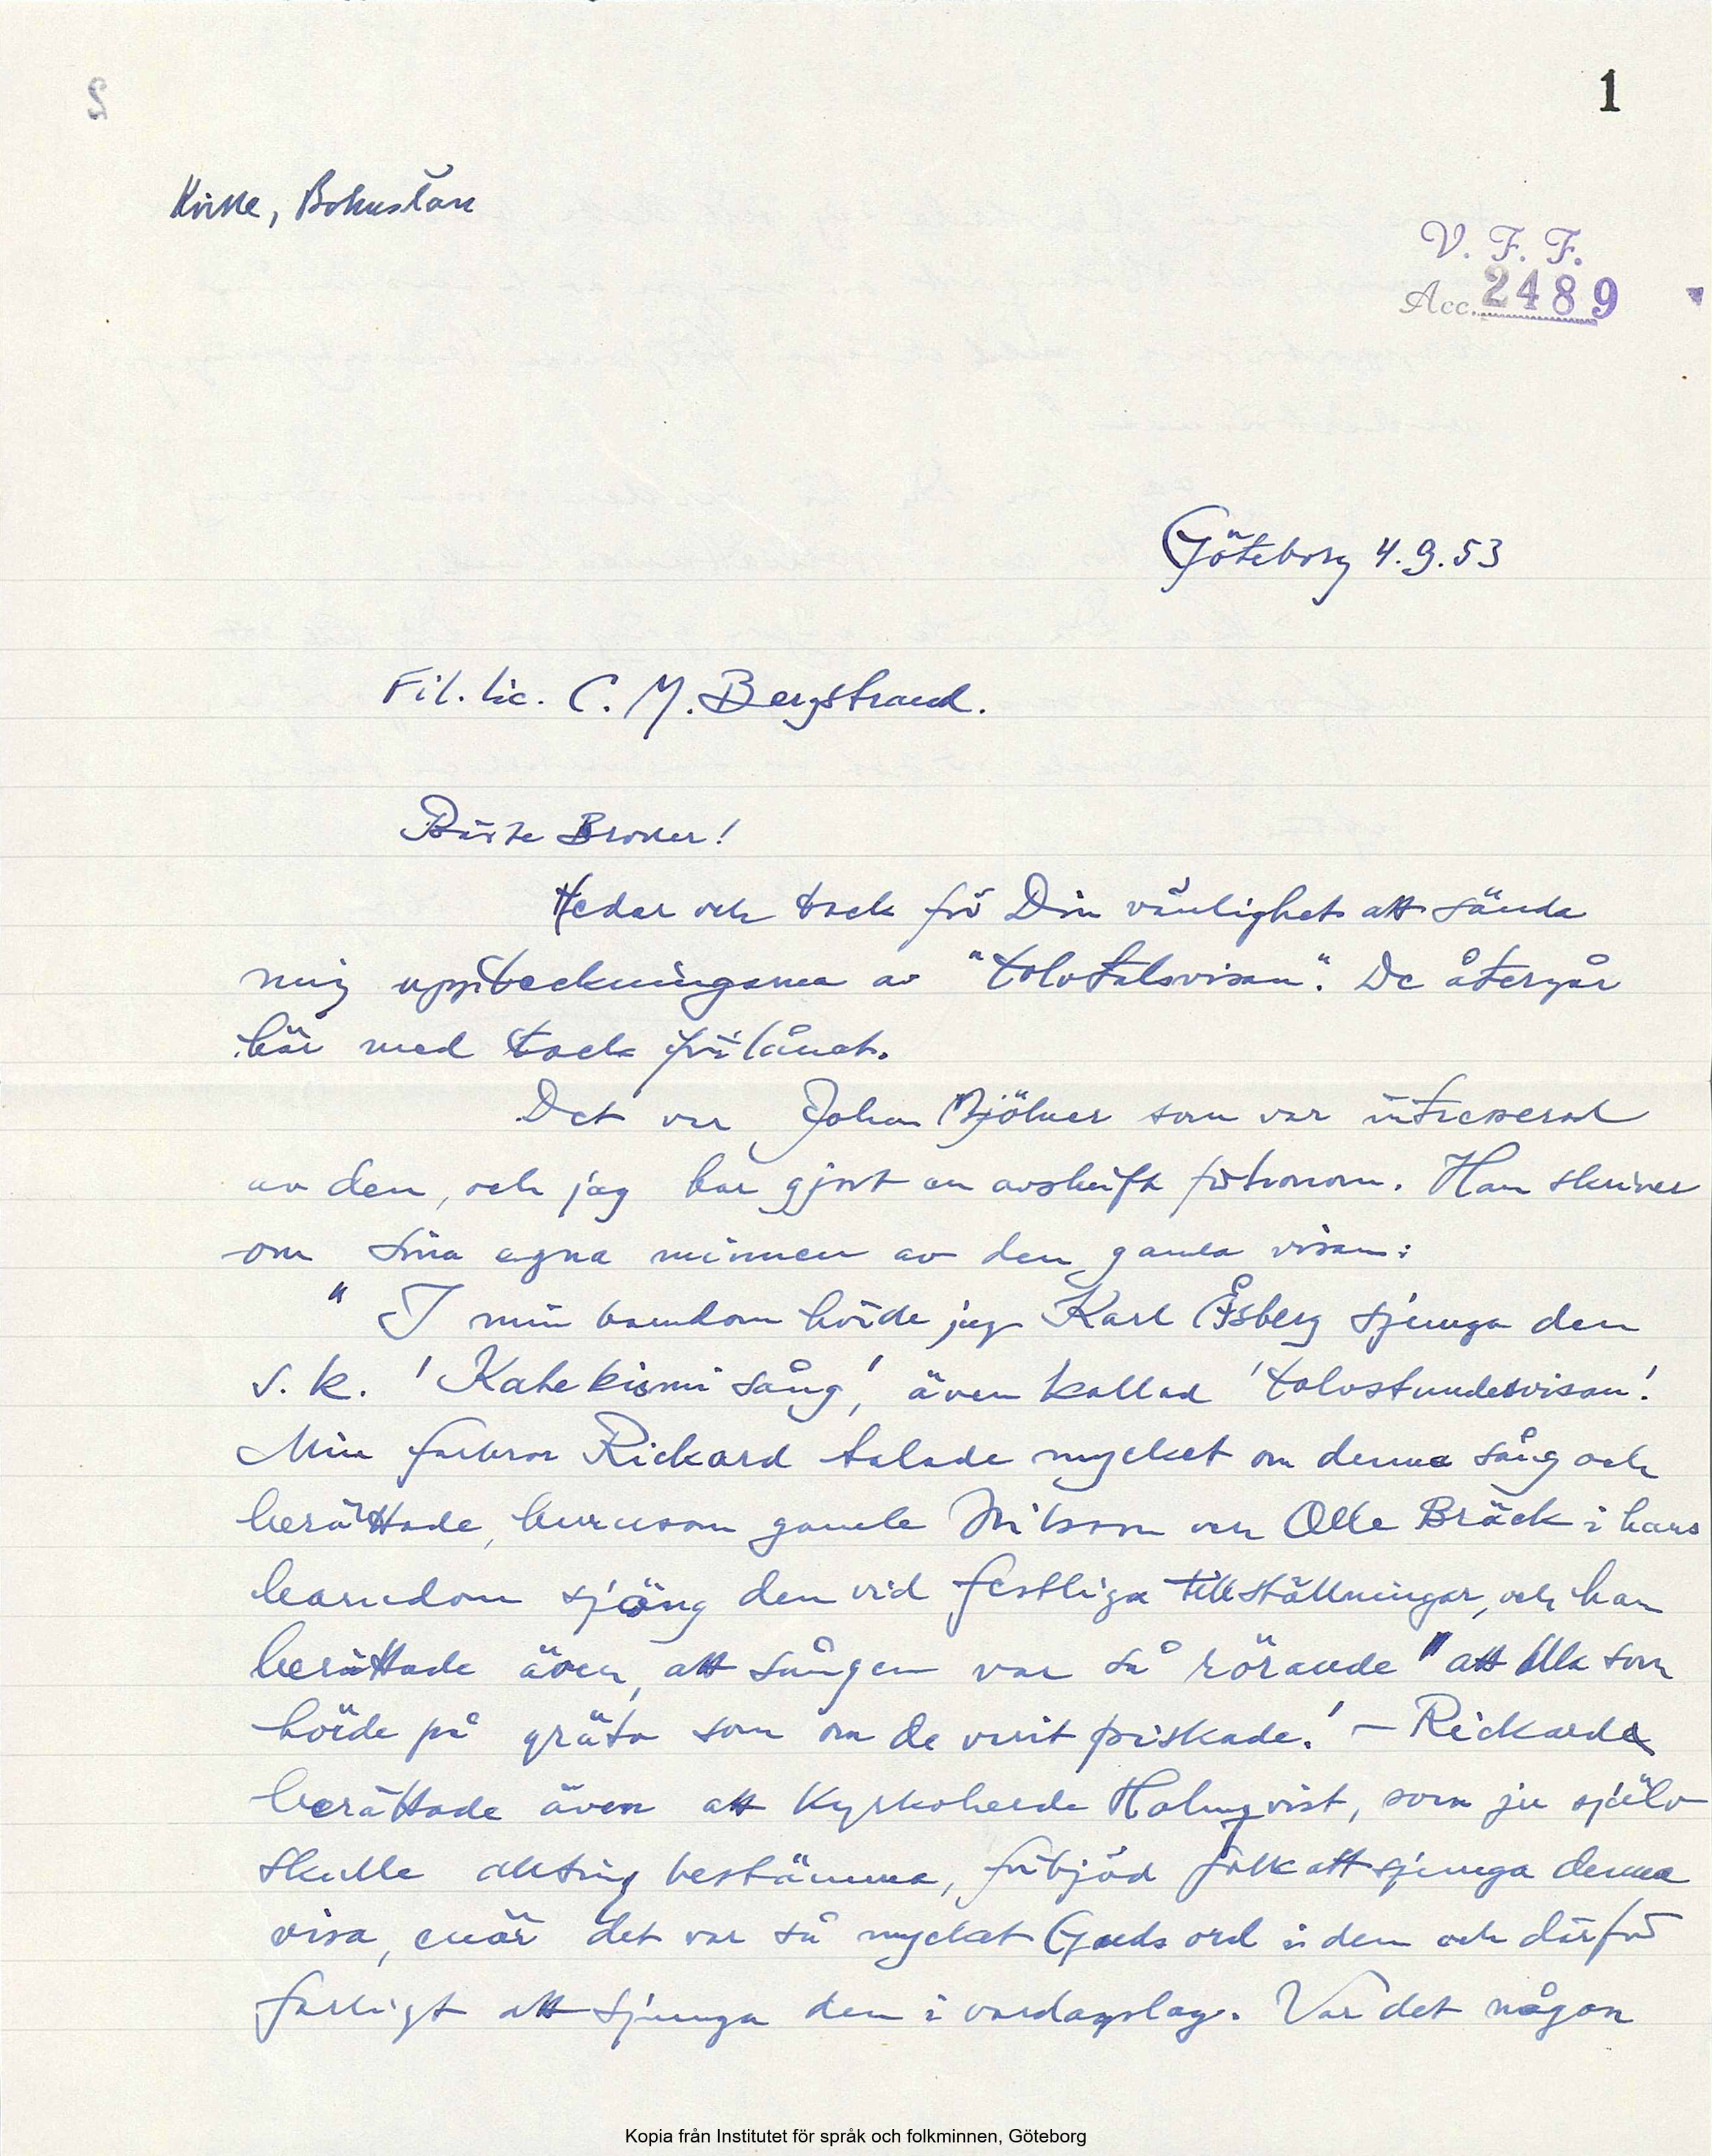 1
2
Kville, Bohuslän
V. F. F.
Acc. 2489
Göteborg 4.9.53
Fil. lic. C. M. Bergstrand.
Bäste Broder!
Heder och tack för Din vänlighet att sända
mig uppteckningarna av "tolvtalsvisan". De återgår
här med tack för lånet.
Det var Johan Mjölner som var intresserad
av den, och jag har gjort en avskrift för honom. Han skriver
om sina egna minnen av den gamla visan:
" I min barndom hörde jag Karl Åsberg sjunga den
s. k. 'Katekismi sång', även kallad 'tolvstundesvisan'.
Min farbror Rickard talade mycket om denna sång och
berättade, hurusom gamle Nilsson och Olle Bräck i hans
barndom sjöng den vid festliga tillställningar, och han
berättade även, att sången var så rörande "att alla som
hörde på gräto som om de vurit piskade.' – Rickard
berättade även att Kyrkoherde Holmqvist, som ju själv
skulle allting bestämma, förbjöd folk att sjunga denna
visa, enär det var så mycket Guds ord i den och därför
farligt att sjunga den i vardagslag. Var det någon
Kopia från Institutet för språk och folkminnen, Göteborg